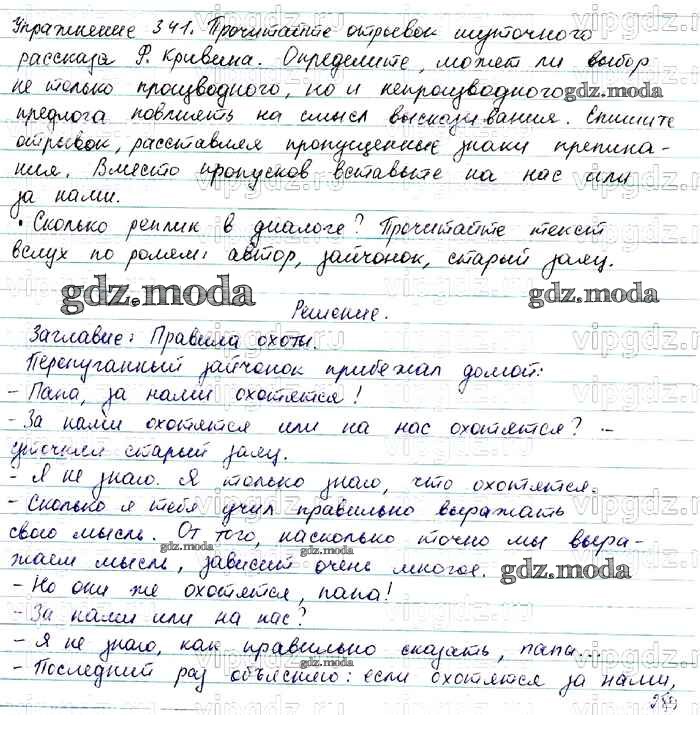 Упражнение 341. Прочитайте отрывок шуточного
рассказа Ф. Кривина. Определите, может ли выбор
не только производного, но и непроизводного
gdz.moda
предлога повлиять на смысл высказывания. Спишите
отрывок, расставляя пропущенные знаки препина-
ния. Вместо пропусков вставьте на нас или
за нами.
• Сколько реплик в диалоге? Прочитайте текст
вслух по ролям: автор, зайчонок, старый заяц.
gdz.moda
gdz.moda
Решение.
Заглавие: Правила охоты.
Перепуганный зайчонок прибежал домой:
- Папа, за нами охотятся!
- За нами охотятся или на нас охотятся? -
уточнил старый заяц.
- Я не знаю. Я только знаю, что охотятся.
- Сколько я тебя учил правильно выражать
свою мысль. От того, насколько точно мы выра-
gdz.moda
жаем мысль, зависит очень многое.
gdz.moda
- Но они же охотятся, папа!
- За нами или на нас?
- Я не знаю, как правильно сказать, папа...
gdz.moda
- Последний раз объясняю: если охотятся за нами,